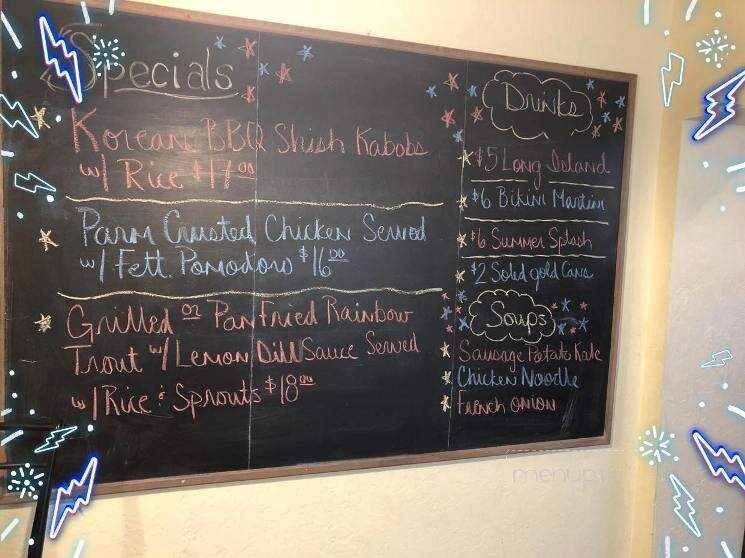 Specials
Korean BBQ Shish Kabobs
w/ Rice $17.00
Parm Crusted Chicken Served
w/ Fett. Pomodoro $16.00
Grilled or Pan Fried Rainbow
Trout w/ Lemon Dill Sauce Served
w/ Rice & Sprouts $18.00
Drinks
$5 Long Island
$6 Bikini Martini
$6 Summer Splash
$2 Solid gold Cans
Soups
Sausage Potato Kale
Chicken Noodle
French onion